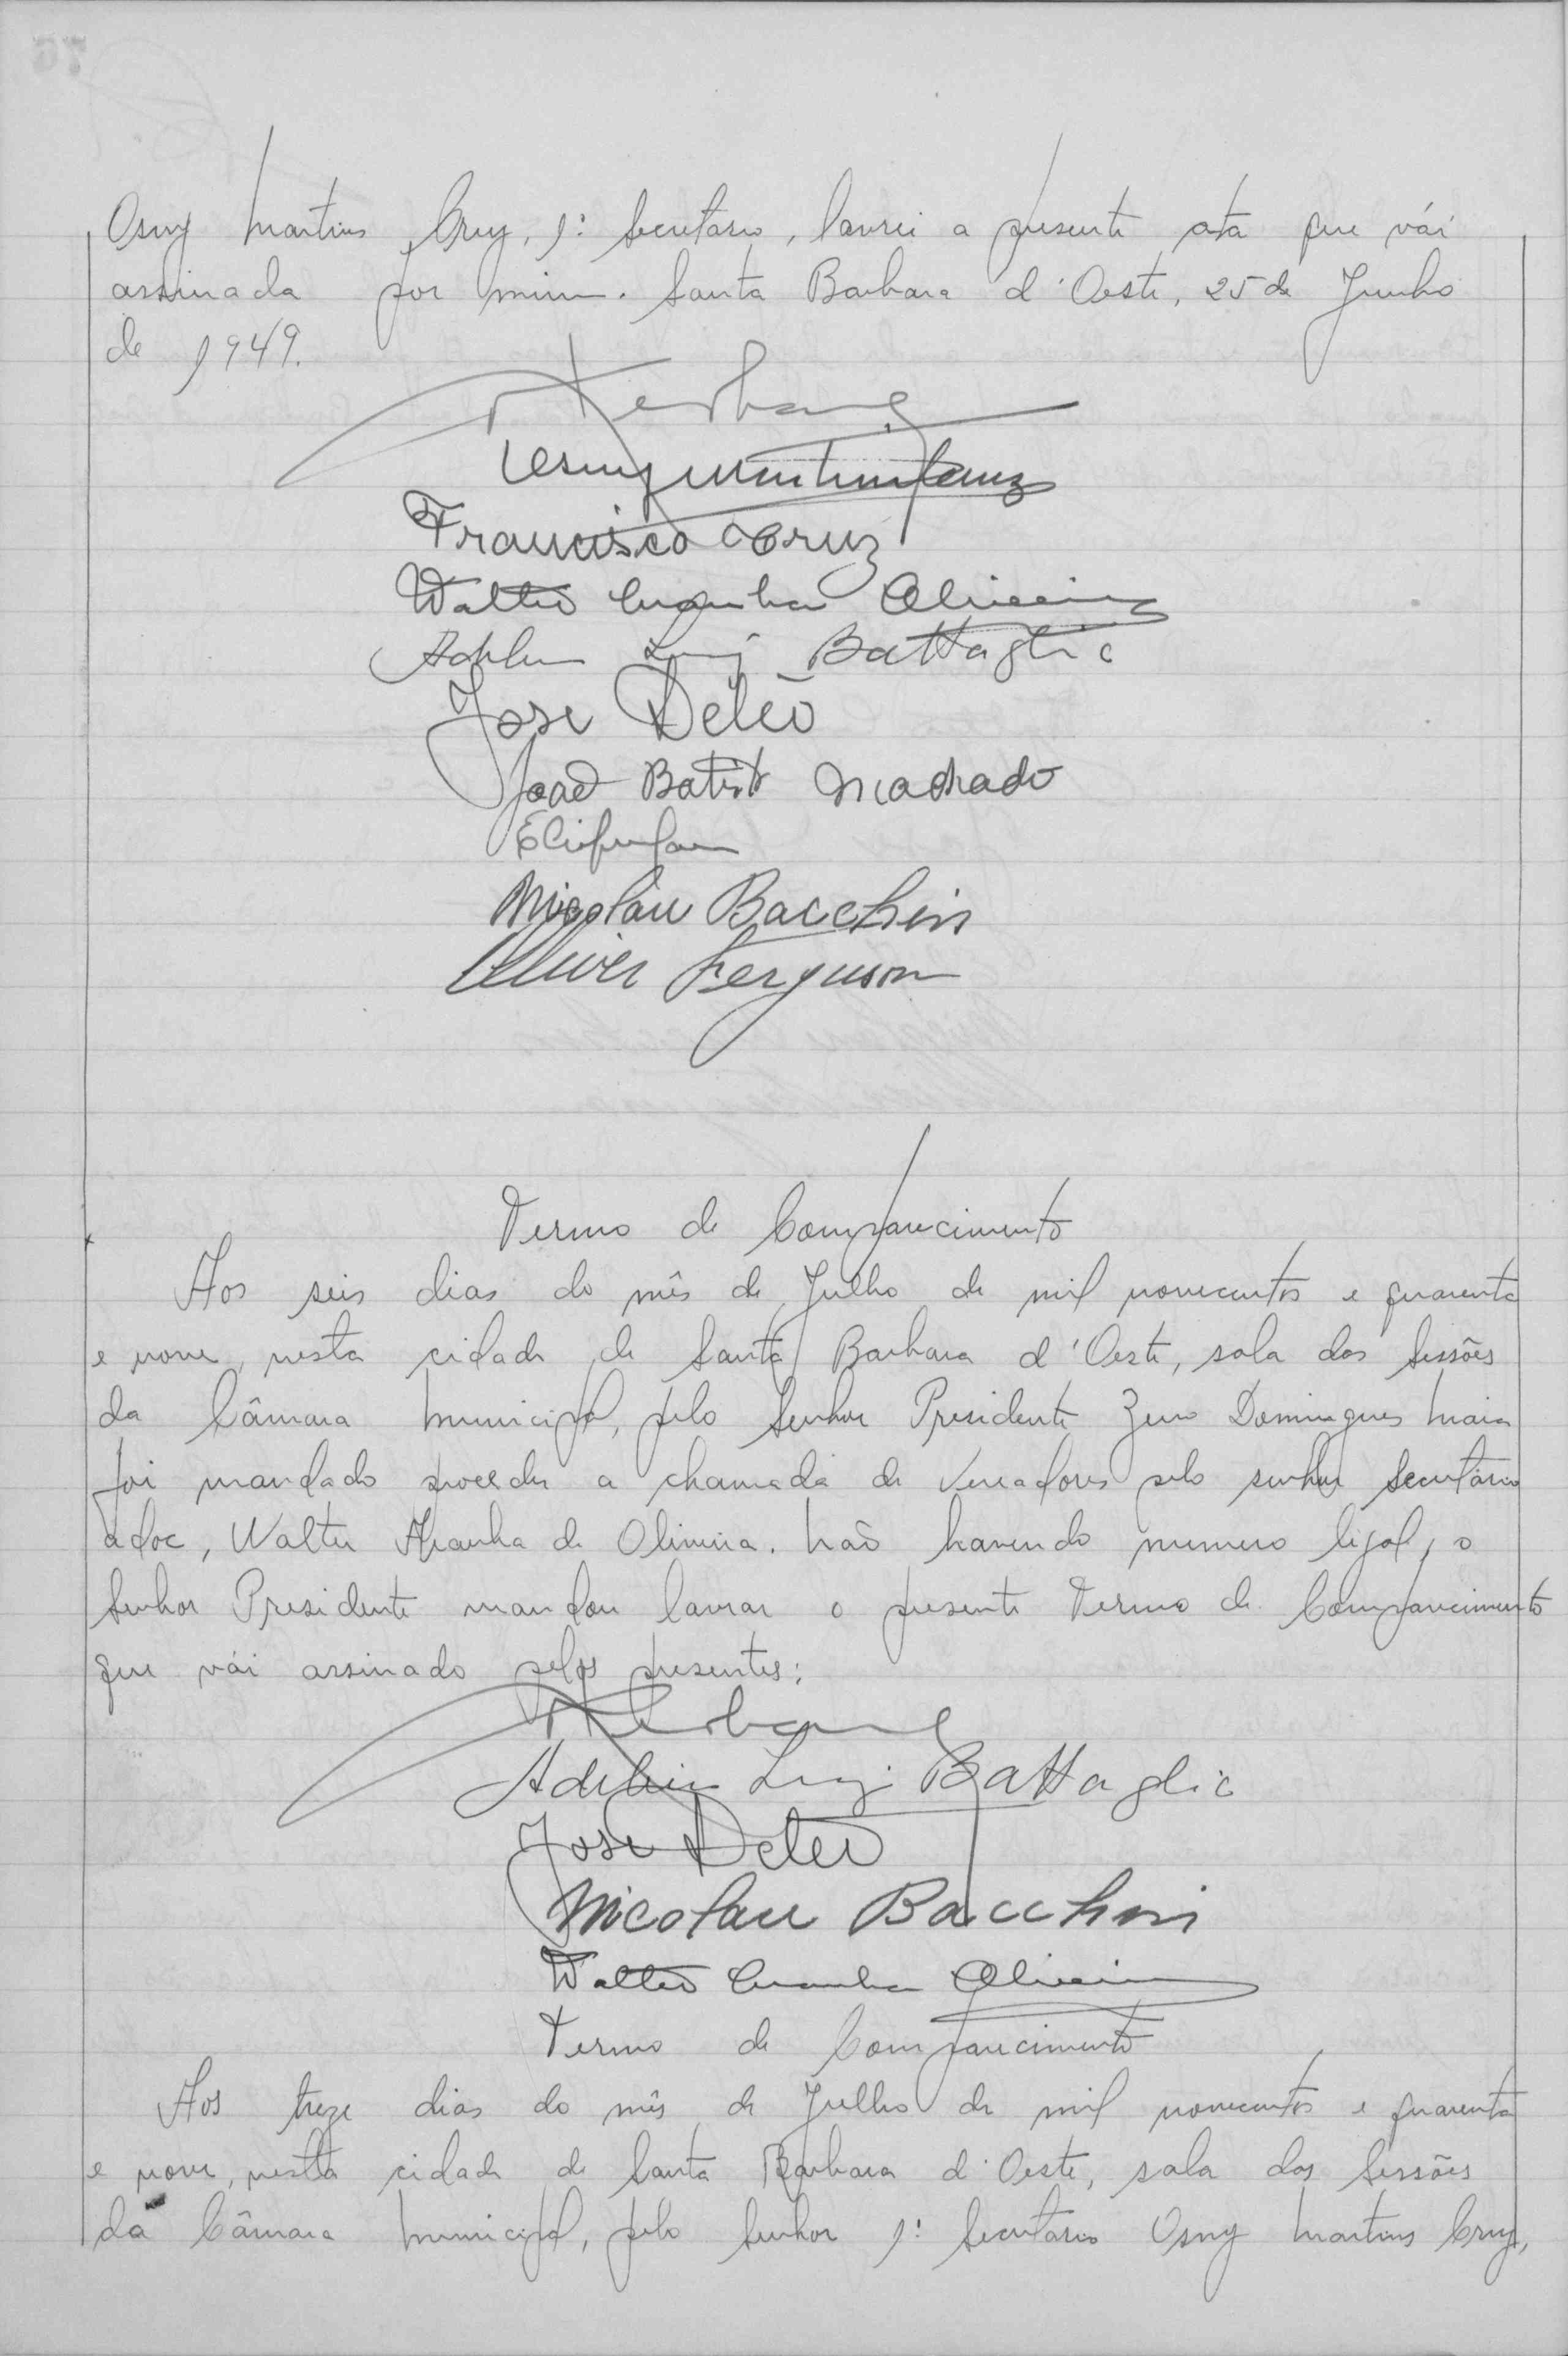 Osny Martins Cruz, 1º Secretario, lavrei a presente ata que vái
assinada por mim. Santa Barbara d'Oeste, 25 de Junho
de 1949.
Osny Martins Cruz
Francisco Cruz
Walter Aranha Oliveira
Luiz Battaglia
Jose Deleo
João Batista Machado
Nicolau Bacchin
Oliver Ferguson
Termo de Comparecimento
Aos seis dias do mês de Julho de mil novecentos e quarenta
e nove, nesta cidade de Santa Barbara d'Oeste, sala das Sessões
da Câmara Municipal, pelo Senhor Presidente Zeno Domingues Maia
foi mandado proceder a chamada de Vereadores pelo senhor Secretário
adoc, Walter Aranha de Oliveira. Não havendo numero legal, o
Senhor Presidente mandou lavrar o presente Termo de Comparecimento
que vái assinado pelos presentes:
Luiz Battaglia
Jose Deleo
Nicolau Bacchin
Walter Aranha Oliveira
Termo de Comparecimento
Aos treze dias do mês de Julho de mil novecentos e quarenta
e nove, nesta cidade de Santa Barbara d'Oeste, sala das Sessões
da Câmara Municipal, pelo Senhor 1º Secretario Osny Martins Cruz,